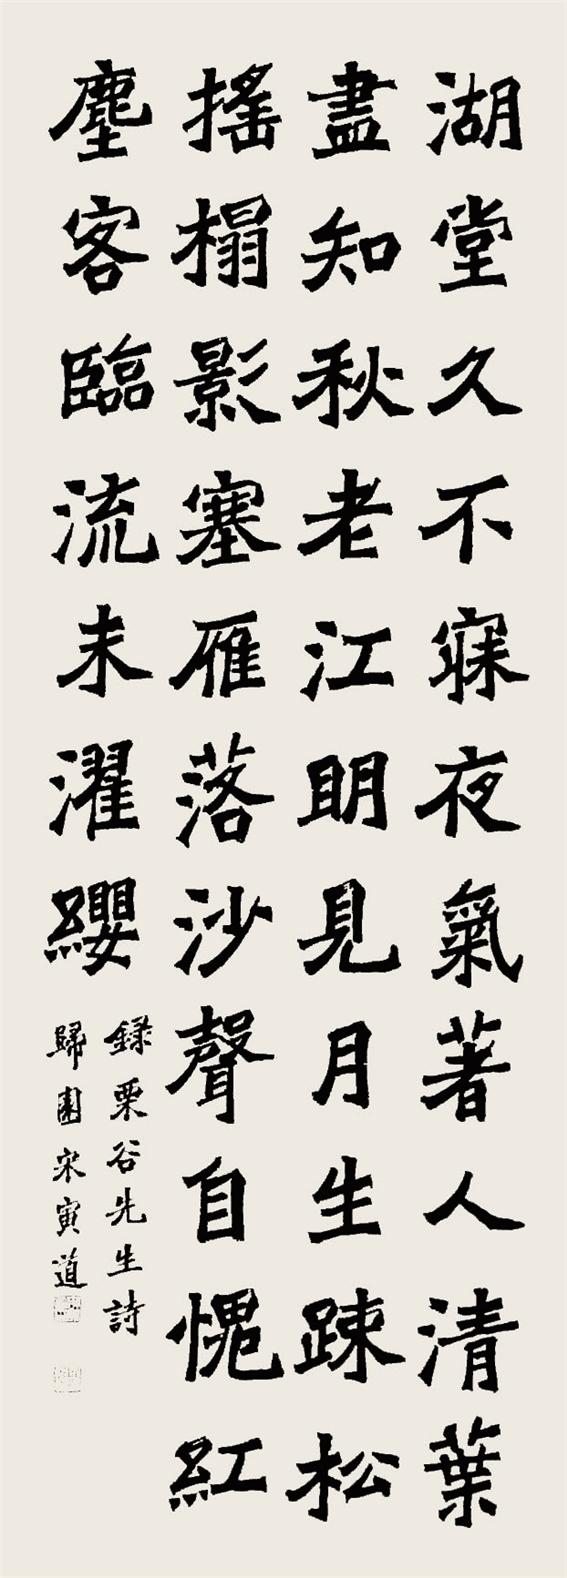 湖堂久不寐夜氣著人清葉
盡知秋老江明見月生踈松
搖榻影塞雁落沙聲自愧紅
塵客臨流未濯纓
錄栗谷先生詩
歸園宋寅道